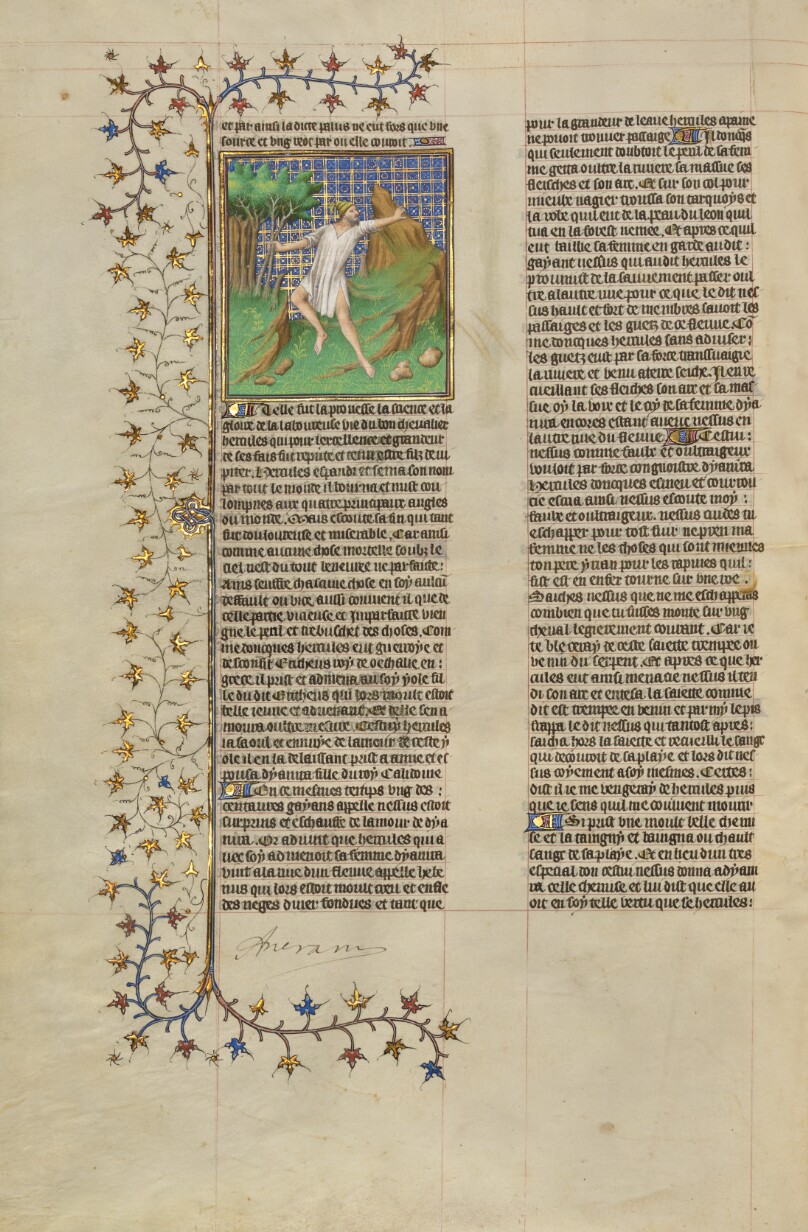 et par ainsi la dicte palus ne eut fors que vne
source et vng ... par ou elle couroit.
Telle fut la prouesse la science et la
gloire de la laboureuse vie du bon cheualier
hercules qui pour lexcellence et grandeur
de ses fais fut repute et tenu estre filz de iu
piter. Hercules espandi et sema son nom
par tout le monde il tourna et mist cou
lompnes aux quatre principaux angles
du monde. Mais escoute sa fin qui tant
fut douloureuse et miserable. Car ainsi
comme aucune chose mortelle soubz le
ciel nest du tout beneuree ne parfaicte:
Ains seuffre chascune chose en soy aucun
deffault ou vice aussi conuient il que de
celle partie vicieuse et Imparfaicte vien
gne le peril et trebuschet des choses. Com
me doncques hercules eut guerroye et
desconfit Eritheus roy de oechalie en:
grece il prist et admena auec soy yole fil
le du dit Eritheus qui lors moult estoit
belle ieune et aduenant. Et delle sen a
moura oultre mesure. Cestuy hercules
ia saoul et ennuye de lamour de ceste y
ole il en la delaissant prist a amie et es
pousa dyanira fille du roy Calidoine
En ce mesmes temps vng des:
centaures gayans appelle nessus estoit
surprins et eschauffe de lamour de dya
nira. Or aduint que hercules qui a
uec soy admenoit sa femme dyanira
vint a la riue dun fleuue appelle hebe
nus qui lors estoit moult creu et enfle
des neges diuer fondues et tant que
pour la grandeur de leaue hercules a paine
ne pouoit trouuer passaige. Il doncqs
qui seulement doubtoit le peril de sa fem
me getta oultre la riuiere sa massue ses
fleisches et son arc. Et sur son col pour
mieulx nagier troussa son tarquoys et
la robe quil eut de la peau du leon quil
tua en la forest nemee. Et apres ce quil
eut baillie sa femme en garde audit:
gayant nessus qui audit hercules le
promist de la sauuement passer oul
tre a lautre riue pour ce que le dit nes
sus hault et fort de membres sauoit les
passaiges et les guetz de ce fleuue. Co
me doncques hercules sans aduiser:
les guetz eust par sa force transnaigie
la riuiere et venu a terre seiche. Il en re
cueillant ses fleiches son arc et sa mas
sue oy la voix et le cry de sa femme dya
nira encores estant auecq nessus en
lautre riue du fleuue Cestui:
nessus comme faulx et oultraigeur
vouloit par force congnoistre dyanira
Hercules doncques esmeu et courrou
cie escria ainsi nessus escoute moy:
faulx et oultraigeur. nessus cuides tu
eschapper pour tost fuir ne pren ma
femme ne les choses qui sont miennes
ton pere yxian pour les rapines quil:
fist est en enfer tourne sur vne roe.
Saiches nessus que ne me eschapperas
combien que tu fusses monte sur vng
cheual legierement courant. Car ie
te bleceray de ceste saiette trempee ou
venin du serpent. Et apres ce que her
cules eut ainsi menacie nessus il ten
di son arc et entesa la saiette comme
dit est trempee en venin et parmy le pis
frappa le dit nessus qui tantost apres:
saicha hors la saiette et recueilli le sang
qui decouroit de sa playe et lors dit nes
sus coyement a soy mesmes. Certes:
dist il ie me vengeray de hercules puis
que ie sens quil me conuient mourir
Si prist vne moult belle chemi
se et la taingny et baingna ou chault
sang de sa playe. Et en lieu dun tres
especial don cestui nessus donna a dyani
ra celle chemise et lui dist que elle au
oit en soy telle vertu que se hercules: